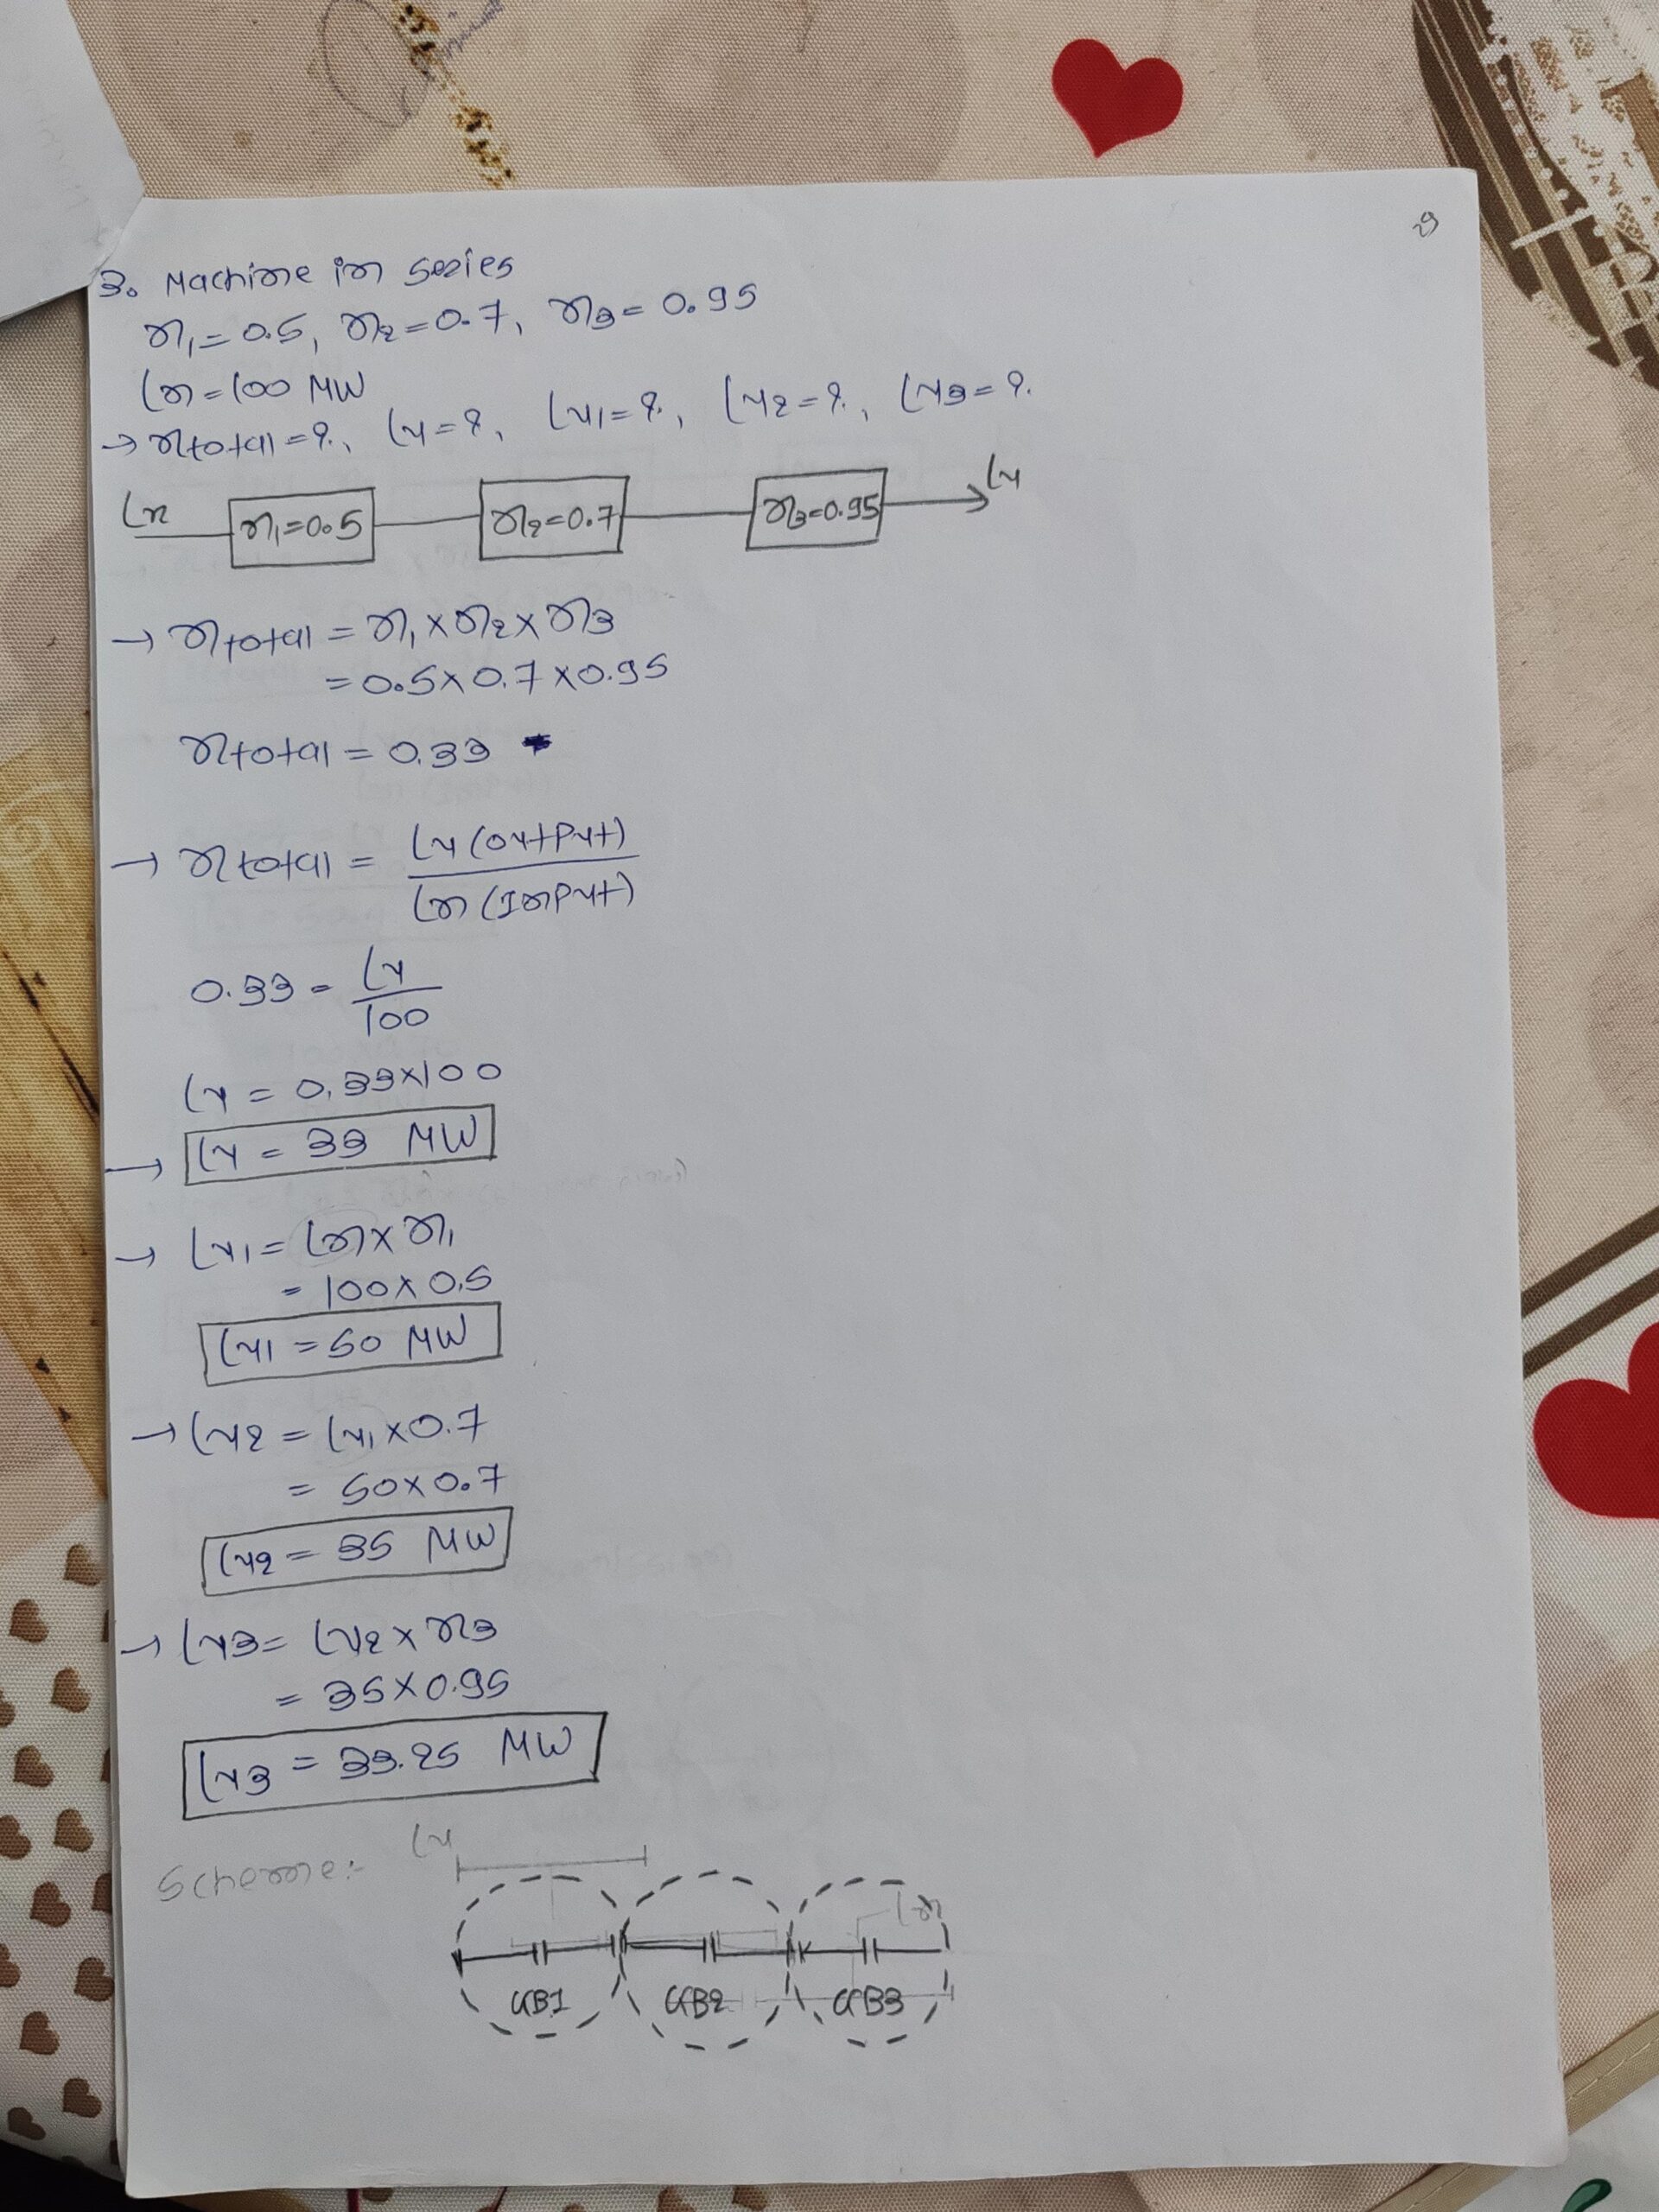 29
3. Machine in series
η1 = 0.5, η2 = 0.7, η3 = 0.95
Ln = 100 MW
→ ηtotal = ?, Lu = ?, Lu1 = ?, Lu2 = ?, Lu3 = ?
Ln η1=0.5 η2=0.7 η3=0.95 Lu
→ ηtotal = η1 × η2 × η3
= 0.5 × 0.7 × 0.95
ηtotal = 0.33
→ ηtotal = Lu (output) / Ln (Input)
0.33 = Lu / 100
Lu = 0.33×100
→ Lu = 33 MW
→ Lu1 = Ln × η1
= 100 × 0.5
Lu1 = 50 MW
→ Lu2 = Lu1 × 0.7
= 50 × 0.7
Lu2 = 35 MW
→ Lu3 = Lu2 × η3
= 35 × 0.95
Lu3 = 33.25 MW
Scheme:- Lu
Ln
GB1 GB2 GB3